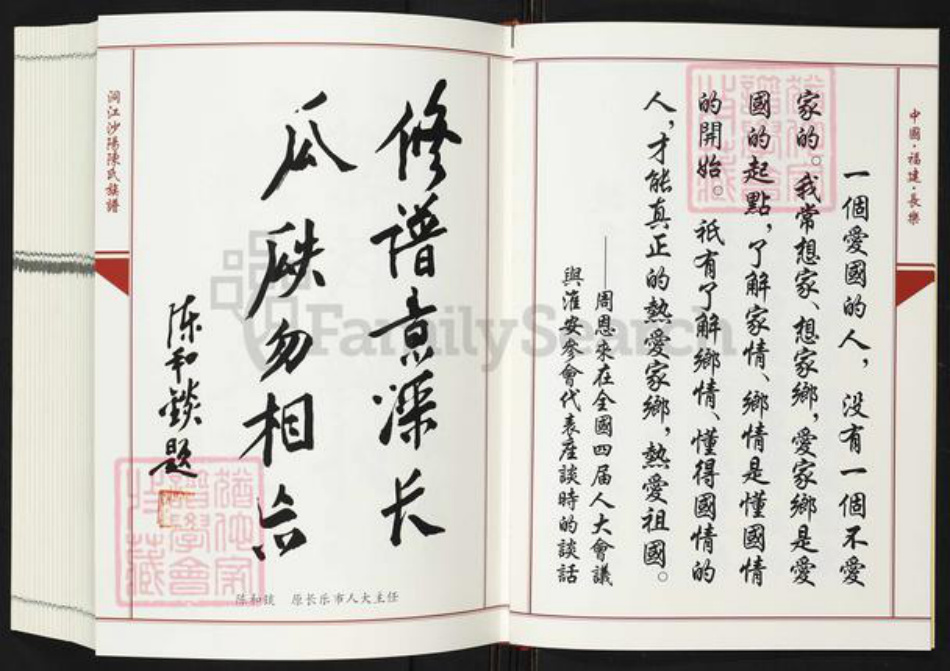 中國·福建·長樂
一個愛國的人，没有一個不愛
家的。我常想家、想家鄉，愛家鄉是愛
國的起點，了解家情、鄉情是懂國情
的開始。祇有了解鄉情、懂得國情的
人，才能真正的熱愛家鄉，熱愛祖國。
——周恩來在全國四届人大會議
與淮安參會代表座談時的談話
修譜意深长
瓜瓞勿相忘
陈和錟题
陈和锬 原长乐市人大主任
洞江沙陽陳氏族譜
FamilySearch